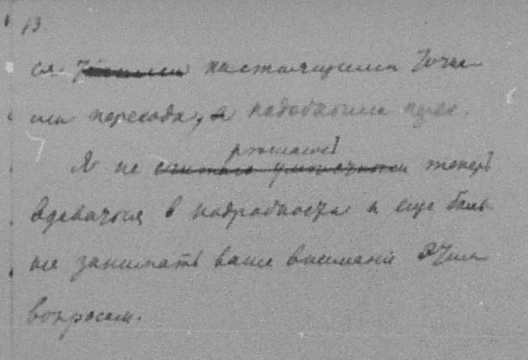 13.
ся настоящими точка
ми перехода, а подобными пере.
Я не решаюсь теперь
вдаваться в подробности и еще боль
ше занимать ваше внимание этим
вопросом.